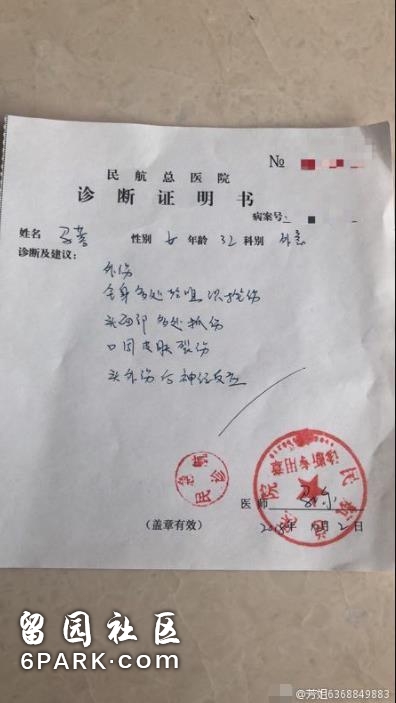 民航总医院
№
诊断证明书
病案号:
姓名 马蓉 性别 女 年龄 32 科别 外急
诊断及建议:
外伤
全身多处软组织挫伤
头面部多处抓伤
口周皮肤裂伤
头外伤后神经反应
民航总医院
诊断专用章
医师
2018年 月2日
(盖章有效)
留园社区
6PARK.com
@芳姐6368849883